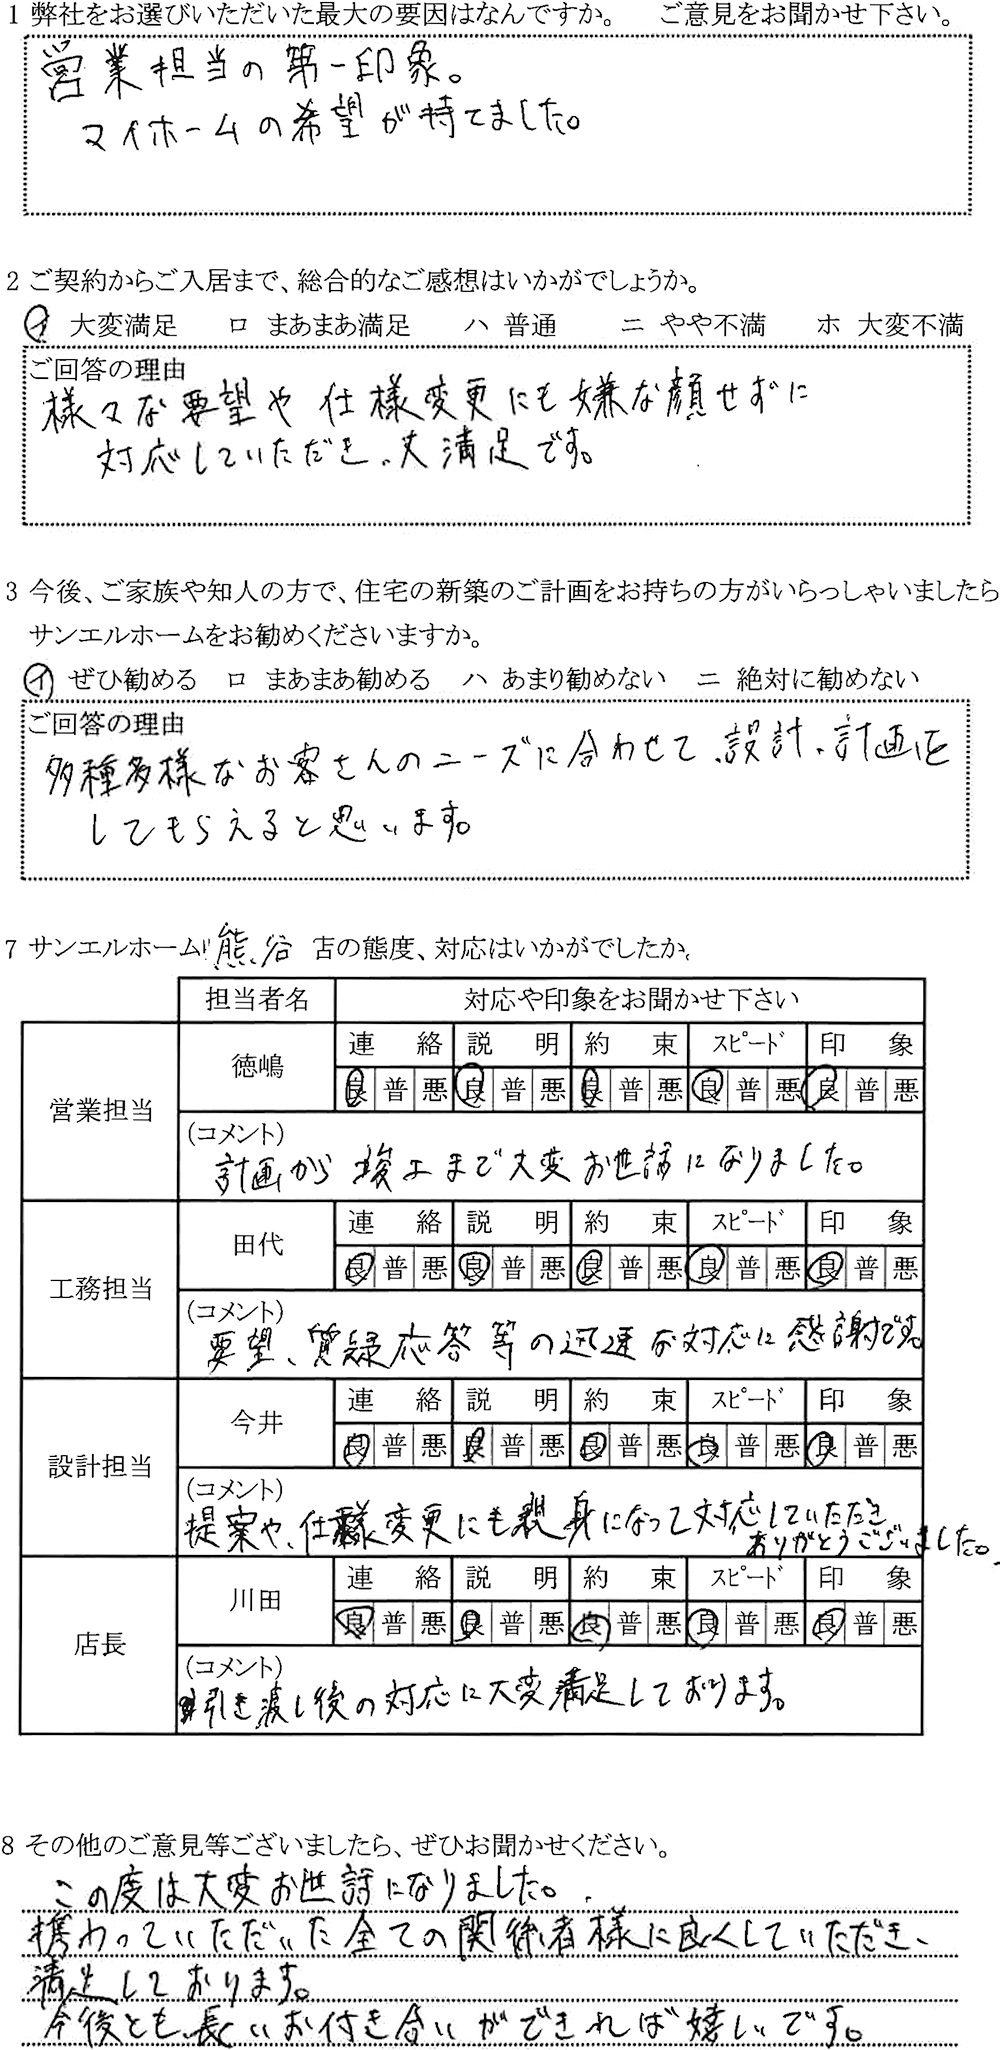 1 弊社をお選びいただいた最大の要因はなんですか。 ご意見をお聞かせ下さい。
営業担当の第一印象。
マイホームの希望が持てました。
2 ご契約からご入居まで、総合的なご感想はいかがでしょうか。
イ 大変満足 ロ まあまあ満足 ハ 普通 ニ やや不満 ホ 大変不満
ご回答の理由
様々な要望や仕様変更にも嫌な顔せずに
対応していただき、大満足です。
3 今後、ご家族や知人の方で、住宅の新築のご計画をお持ちの方がいらっしゃいましたら
サンエルホームをお勧めくださいますか。
イ ぜひ勧める ロ まあまあ勧める ハ あまり勧めない ニ 絶対に勧めない
ご回答の理由
多種多様なお客さんのニーズに合わせて、設計、計画を
してもらえると思います。
7 サンエルホーム 熊谷 店の態度、対応はいかがでしたか。
担当者名 対応や印象をお聞かせ下さい
営業担当 徳嶋 連絡 説明 約束 スピード 印象
良 普 悪 良 普 悪 良 普 悪 良 普 悪 良 普 悪
(コメント)
計画から竣工まで大変お世話になりました。
工務担当 田代 連絡 説明 約束 スピード 印象
良 普 悪 良 普 悪 良 普 悪 良 普 悪 良 普 悪
(コメント)
要望、質疑応答等の迅速な対応に感謝です。
設計担当 今井 連絡 説明 約束 スピード 印象
良 普 悪 良 普 悪 良 普 悪 良 普 悪 良 普 悪
(コメント)
提案や、仕様変更にも親身になって対応していただき
ありがとうございました。
店長 川田 連絡 説明 約束 スピード 印象
良 普 悪 良 普 悪 良 普 悪 良 普 悪 良 普 悪
(コメント)
引き渡し後の対応に大変満足しております。
8 その他のご意見等ございましたら、ぜひお聞かせください。
この度は大変お世話になりました。
携わっていただいた全ての関係者様に良くしていただき、
満足しております。
今後とも、長いお付き合いができれば嬉しいです。